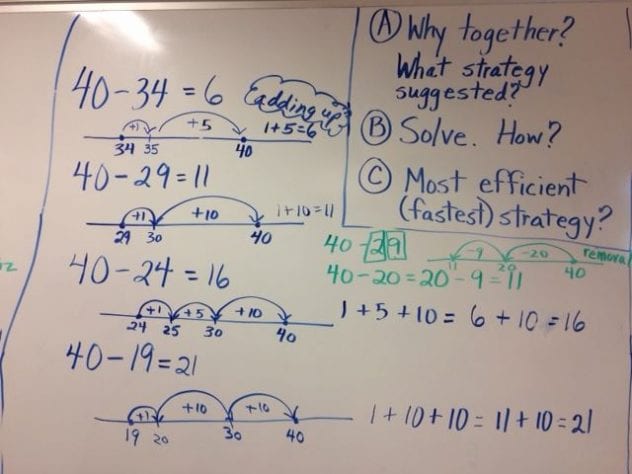 40-34=6
adding up
+1 +5 1+5=6
34 35 40
40-29=11
+1 +10 1+10=11
29 30 40
40-24=16
+1 +5 +10 1+5+10=6+10=16
24 25 30 40
40-19=21
+1 +10 +10 1+10+10=11+10=21
19 20 30 40
A Why together?
What strategy
suggested?
B Solve. How?
C Most efficient
(fastest) strategy?
40-29
-9 -20 removal
11 20 40
40-20=20-9=11